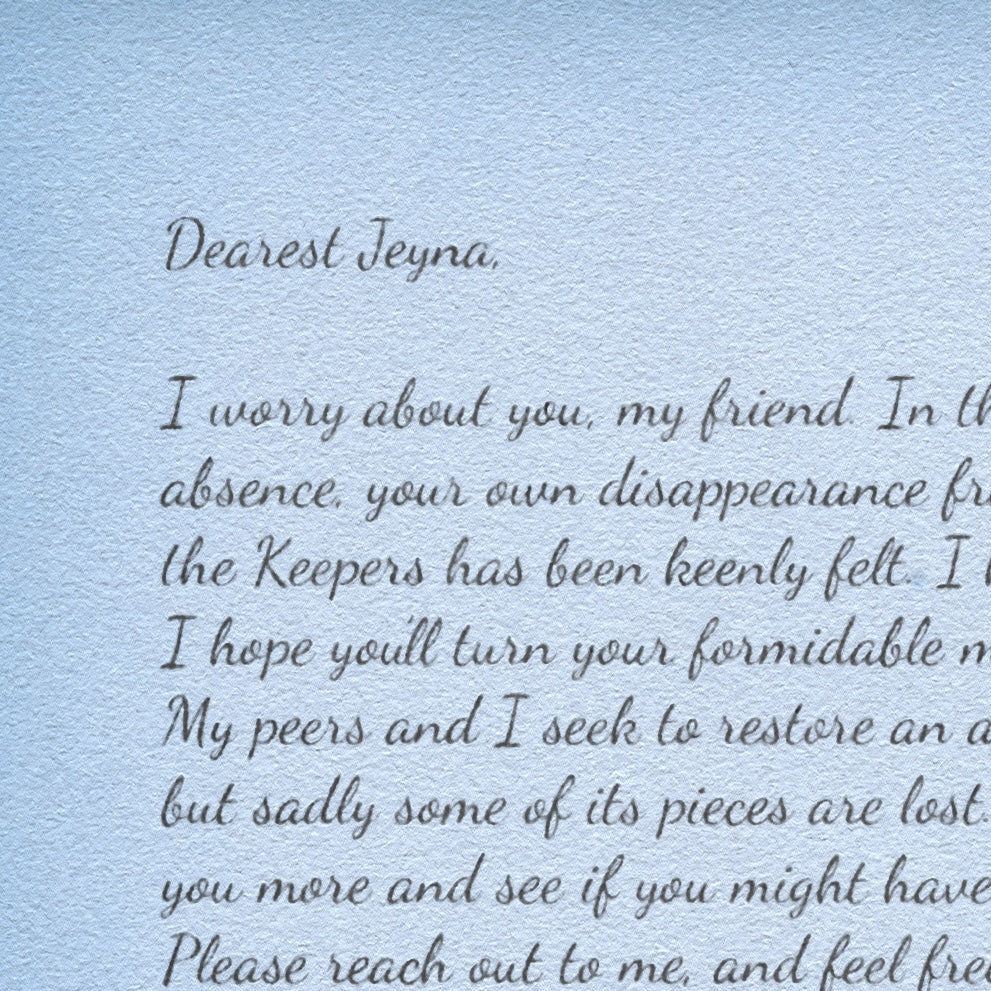 Dearest Jeyna,
I worry about you, my friend. In
absence, your own disappearance
the Keepers has been keenly felt. I
I hope you'll turn your formidable
My peers and I seek to restore an
but sadly some of its pieces are lost.
you more and see if you might have
Please reach out to me, and feel